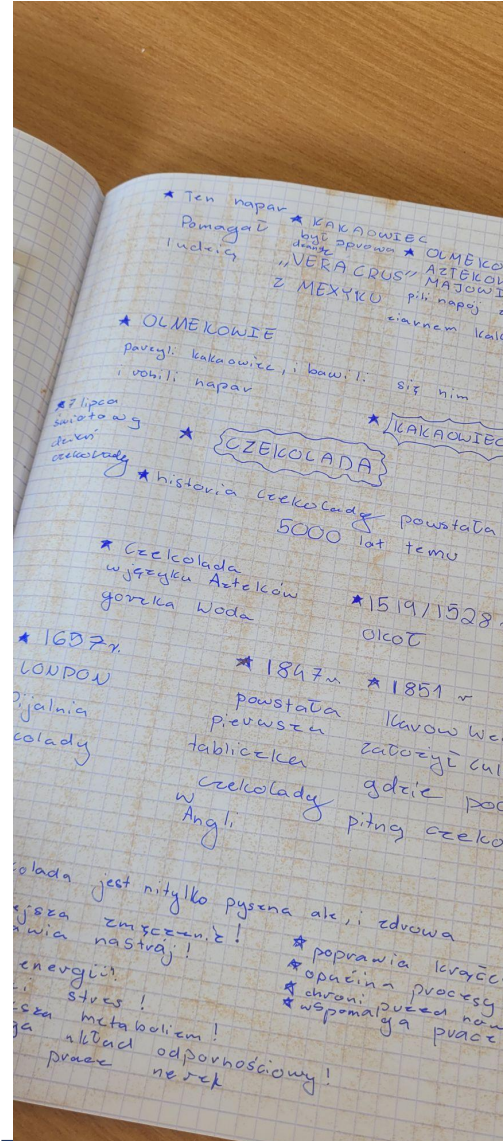 ★ Ten napar
Pomagał
ludzią
★ KAKAOWIEC
był oprowa
"VERA CRUS"
Z MEXYKU
★ OLMEKO
AZTEKOW
MAJOWI
pili napój z
ciarnem kak
★ OLMEKOWIE
parzyli kakaowiec, i bawili się nim
i robili napar
★ 7 lipca
światowy
dzień
czekolady
★ KAKAOWIEC
★ CZEKOLADA
★ historia czekolady powstała
5000 lat temu
★ Czekolada
w języku Azteków
gorzka woda
★ 1519/1528
okoł
★ 1657r.
LONDON
pijalnia
colady
★ 1847r.
powstała
pierwsza
tabliczka
czekolady
w
Angli
★ 1851 r
założył cu
gdzie poc
pitną czeko
olada jest nitylko pyszna ale, i zdrowa
ejsza zmęczenie!
awia nastrój!
energii!
i stres!
sza metabolizm!
ga układ odpornościowy!
prace nerek
★ poprawia krąże
★ opuźina procesy
★ chroni przed
★ wspomaga prace